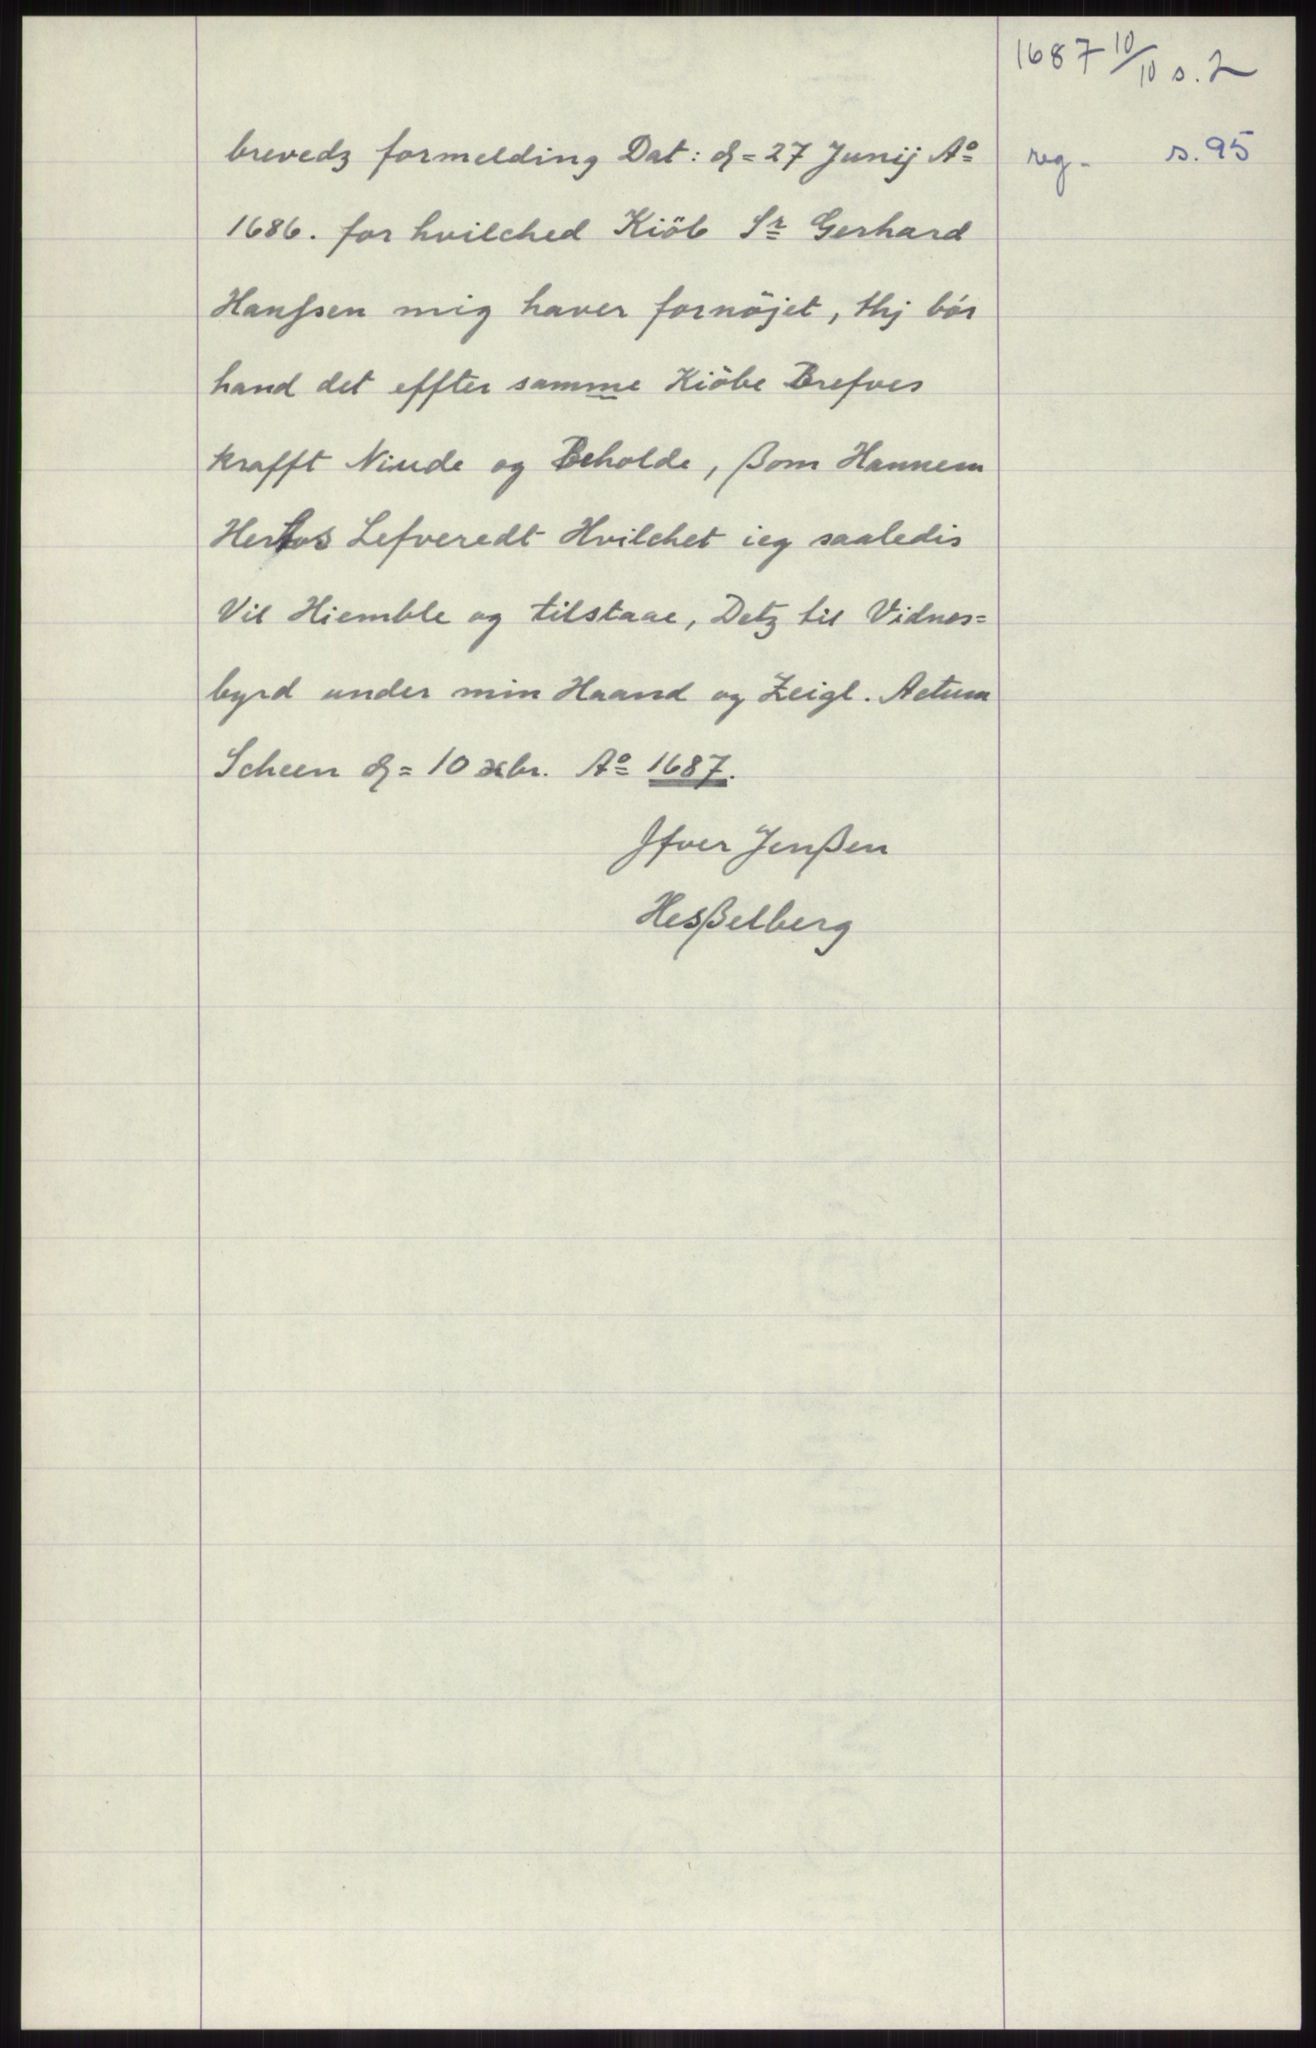 1687 10/10 s. 2
reg. s. 95
brevedz formelding Dat: d= 27 Junij Aº
1686. for hvilched Kiöb Sr Gerhard
Hanssen mig haver fornöjet, thj bör
hand det effter samme Kiöbe Brefves
krafft Niude og Beholde, ßom Hannem
Lefveredt Hvilchet ieg saaledis
Vil Hiemble og tilstaae, Detz til Vidnes=
byrd under min Haand og Zeigl. Actum
Scheen d= 10 xbr. Aº 1687.
Jfver Jenßen
Hesßelberg